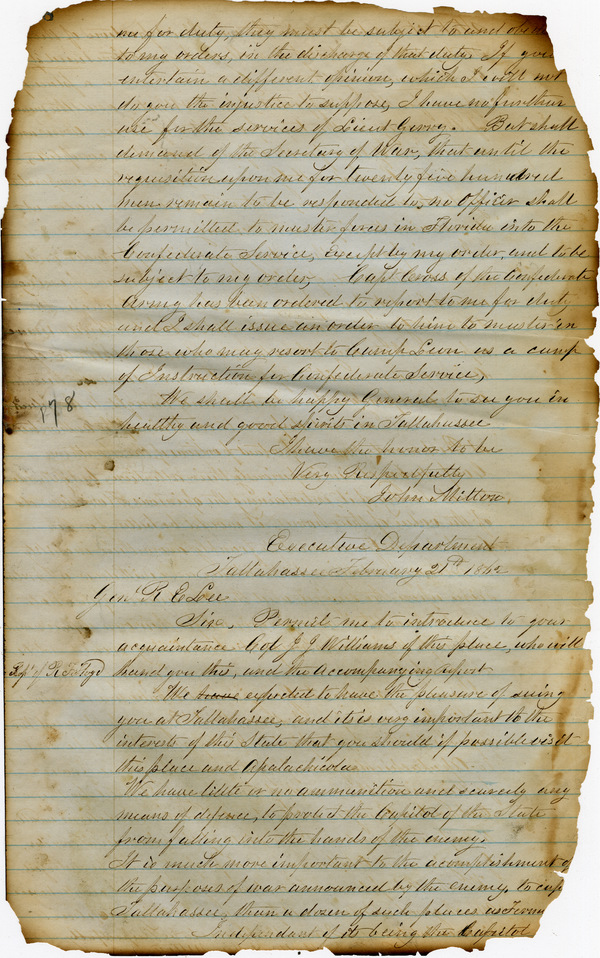 me for duty, they must be subject to and obey
to my orders, in the discharge of that duty. If you
entertain a different opinion, which I will not
do you the injustice to suppose, I have no further
use for the services of Lieut Gerry. But shall
demand of the Secretary of War, that until the
requisition upon me for twenty five hundred
men remain to be responded to, no Officer shall
be permitted to muster forces in Florida into the
Confederate Service, except by my order, and to be
subject to my order. Capt Cross of the Confederate
Army has been ordered to report to me for duty
and I shall issue an order to him to muster in
those who may resort to Camp Leon as a camp
of Instruction for Confederate Service,
178
We shall be happy General to see you in
healthy and good spirits in Tallahassee
I have the honor to be
Very Respectfully
John Milton
Executive Department
Tallahassee February 21st 1862
Genl R E Lee
Sir, Permit me to introduce to your
acquaintance Col J J Williams of this place, who will
Rept of R F Floyd
hand you this, and the accompanying report
We have expected to have the pleasure of seeing
you at Tallahassee, and it is very important to the
interests of this State that you should if possible visit
this place and Apalachicola
We have little or no ammunition and scarcely any
means of defence, to protect the Capitol of the State
from falling into the hands of the enemy.
It is much more important to the acomplishment of
the purposes of war announced by the enemy, to cap
Tallahassee, than a dozen of such places as Ferna
Independant of its being the Capitol